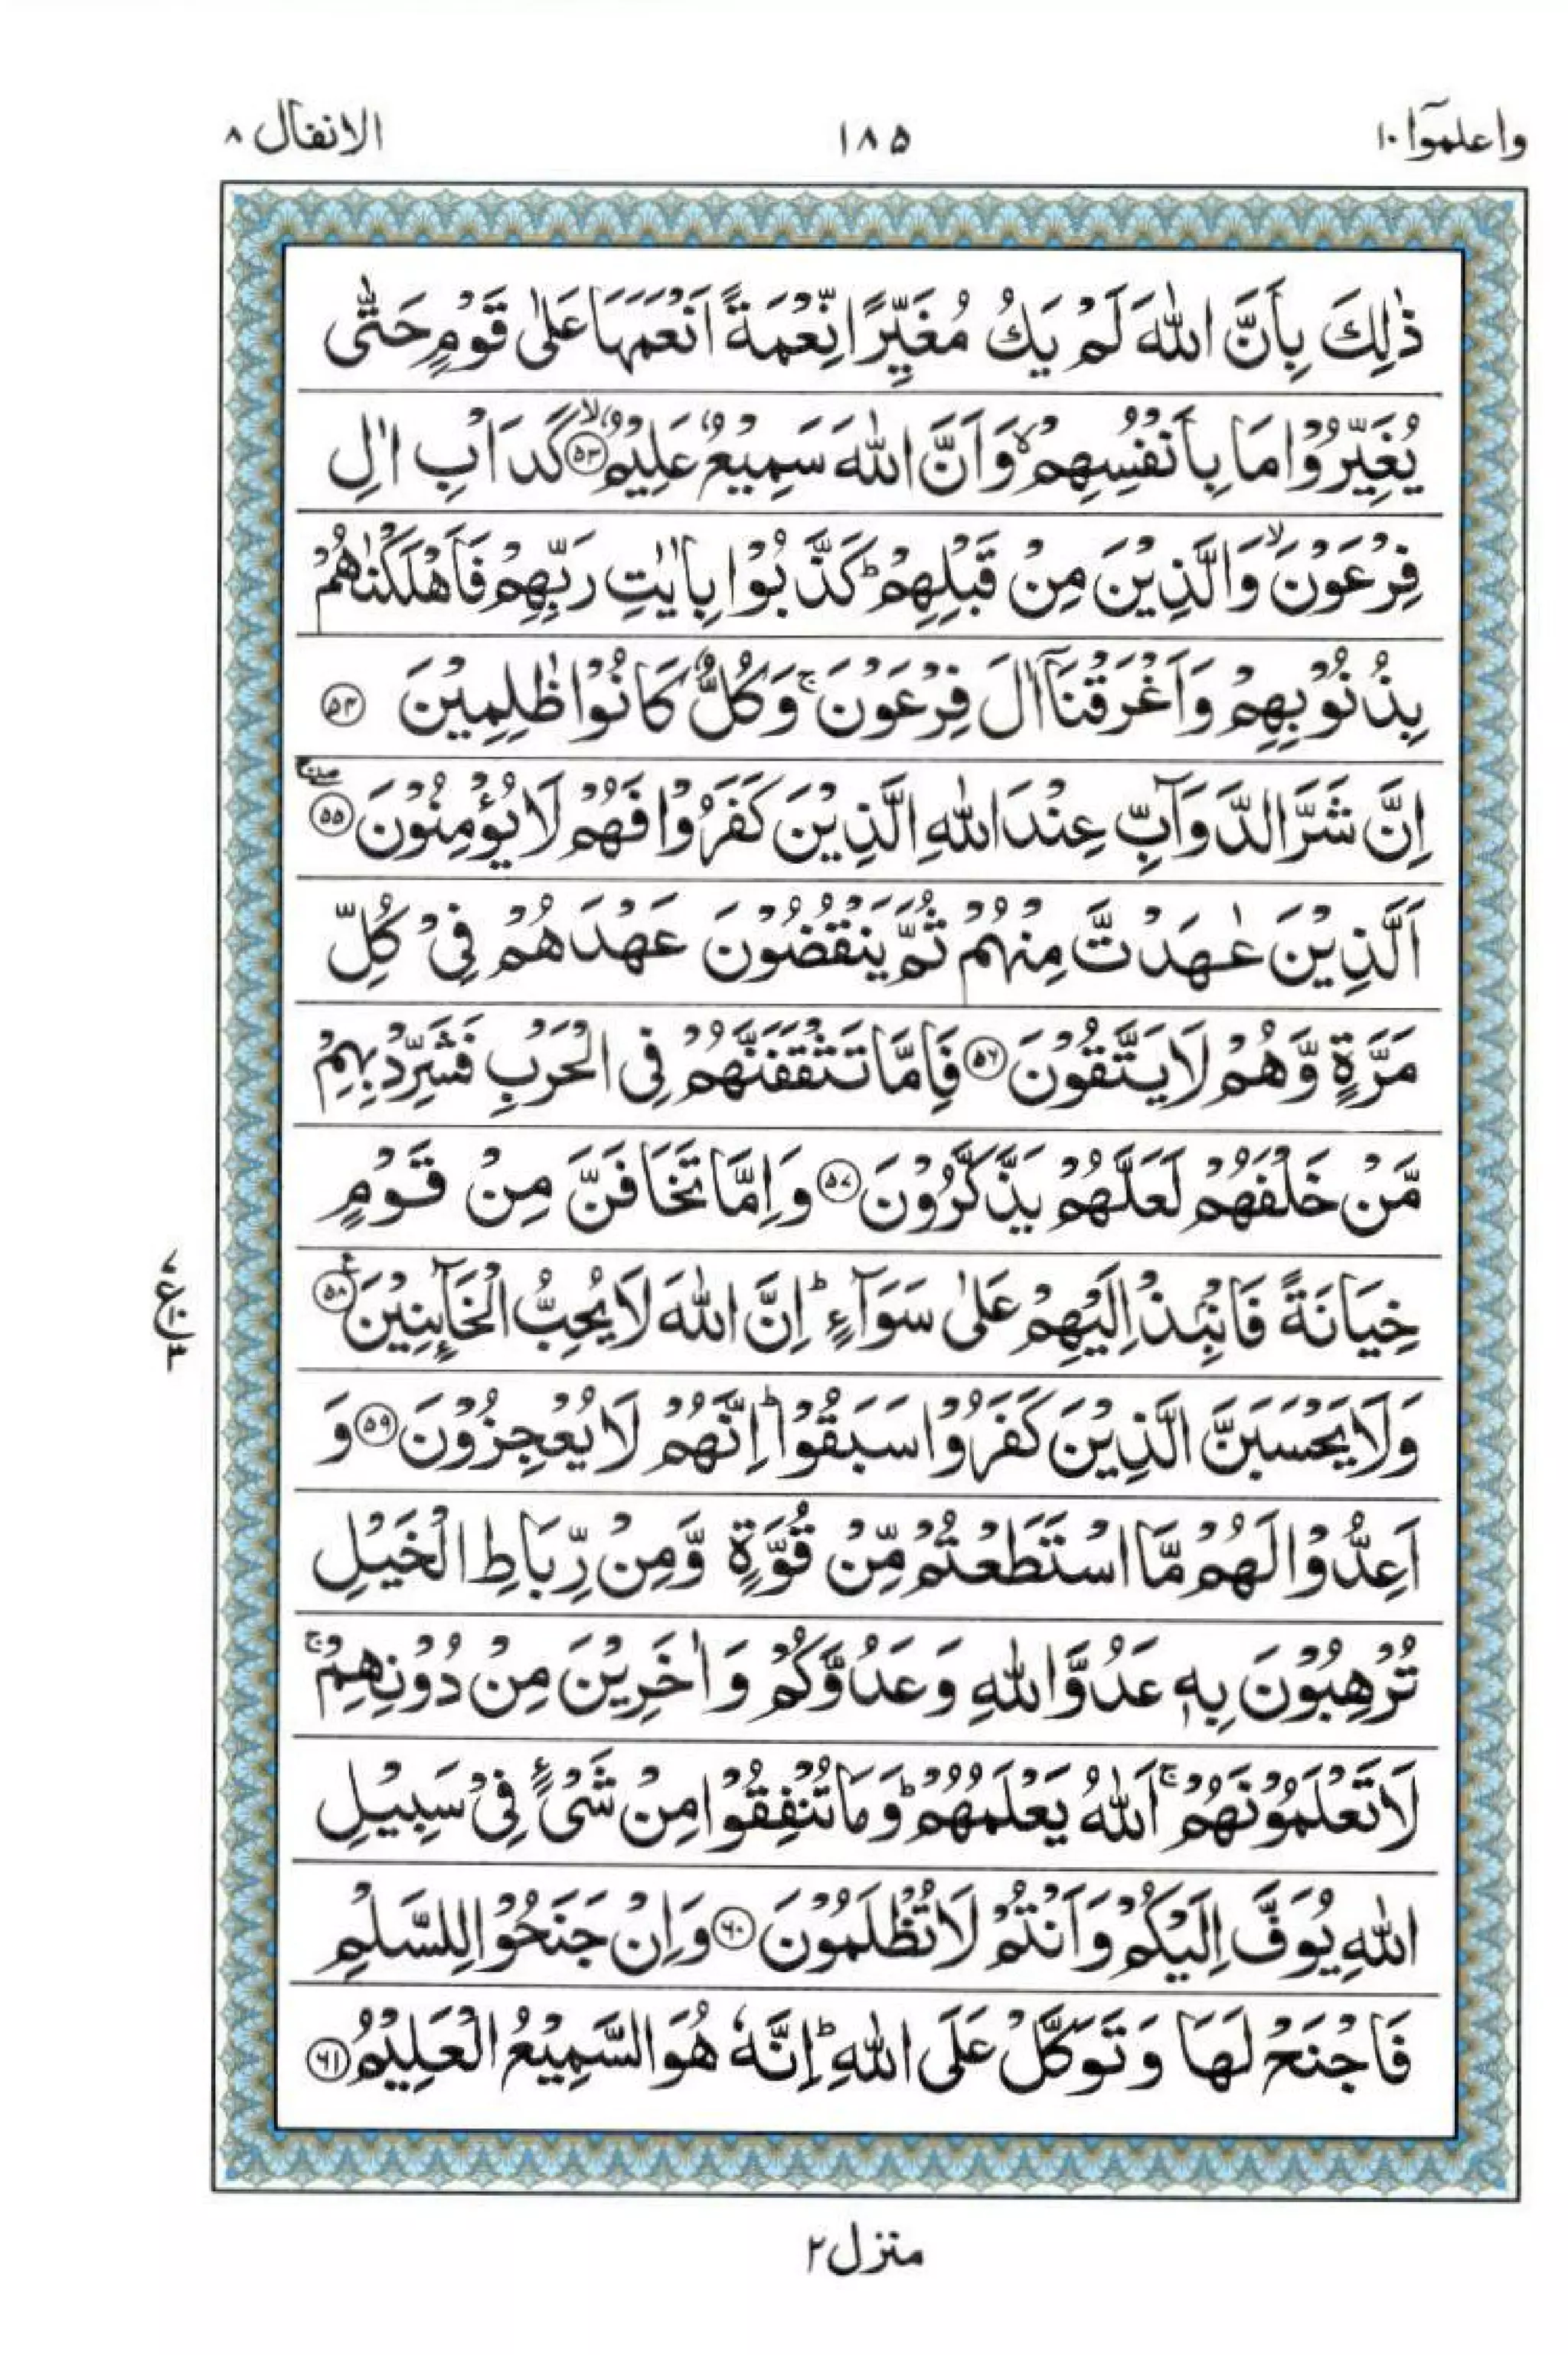 واعلموٓا ١٠
١٨٥
الانفال ٨
ذٰلِكَ بِاَنَّ اللّٰهَ لَمْ يَكُ مُغَيِّرًا نِّعْمَةً اَنْعَمَهَا عَلٰى قَوْمٍ حَتّٰى
يُغَيِّرُوْا مَا بِاَنْفُسِهِمْ ۙ وَاَنَّ اللّٰهَ سَمِيْعٌ عَلِيْمٌ ۙ ﴿۵۳﴾ كَدَاْبِ اٰلِ
فِرْعَوْنَ ۙ وَالَّذِيْنَ مِنْ قَبْلِهِمْ ؕ كَذَّبُوْا بِاٰيٰتِ رَبِّهِمْ فَاَهْلَكْنٰهُمْ
بِذُنُوْبِهِمْ وَاَغْرَقْنَاۤ اٰلَ فِرْعَوْنَ ۚ وَكُلٌّ كَانُوْا ظٰلِمِيْنَ ﴿۵۴﴾
اِنَّ شَرَّ الدَّوَآبِّ عِنْدَ اللّٰهِ الَّذِيْنَ كَفَرُوْا فَهُمْ لَا يُؤْمِنُوْنَ ۖۚ ﴿۵۵﴾
اَلَّذِيْنَ عٰهَدْتَّ مِنْهُمْ ثُمَّ يَنْقُضُوْنَ عَهْدَهُمْ فِيْ كُلِّ
مَرَّةٍ وَّهُمْ لَا يَتَّقُوْنَ ﴿۵۶﴾ فَاِمَّا تَثْقَفَنَّهُمْ فِى الْحَرْبِ فَشَرِّدْ بِهِمْ
مَّنْ خَلْفَهُمْ لَعَلَّهُمْ يَذَّكَّرُوْنَ ﴿۵۷﴾ وَاِمَّا تَخَافَنَّ مِنْ قَوْمٍ
خِيَانَةً فَانْۢبِذْ اِلَيْهِمْ عَلٰى سَوَآءٍ ؕ اِنَّ اللّٰهَ لَا يُحِبُّ الْخَآىِٕنِيْنَ ﴿۵۸﴾ ع
وَلَا يَحْسَبَنَّ الَّذِيْنَ كَفَرُوْا سَبَقُوْا ؕ اِنَّهُمْ لَا يُعْجِزُوْنَ ﴿۵۹﴾ وَ
اَعِدُّوْا لَهُمْ مَّا اسْتَطَعْتُمْ مِّنْ قُوَّةٍ وَّمِنْ رِّبَاطِ الْخَيْلِ
تُرْهِبُوْنَ بِهٖ عَدُوَّ اللّٰهِ وَعَدُوَّكُمْ وَاٰخَرِيْنَ مِنْ دُوْنِهِمْ ۚ
لَا تَعْلَمُوْنَهُمْ ۚ اَللّٰهُ يَعْلَمُهُمْ ؕ وَمَا تُنْفِقُوْا مِنْ شَيْءٍ فِيْ سَبِيْلِ
اللّٰهِ يُوَفَّ اِلَيْكُمْ وَاَنْتُمْ لَا تُظْلَمُوْنَ ﴿۶۰﴾ وَاِنْ جَنَحُوْا لِلسَّلْمِ
فَاجْنَحْ لَهَا وَتَوَكَّلْ عَلَى اللّٰهِ ؕ اِنَّهٗ هُوَ السَّمِيْعُ الْعَلِيْمُ ﴿۶۱﴾
منزل ٢